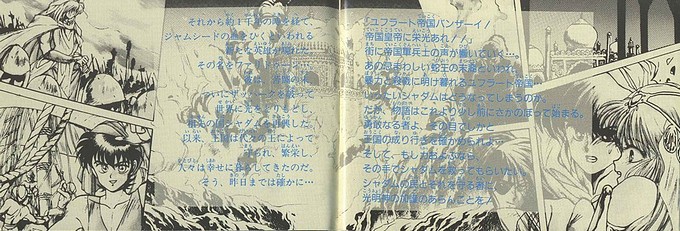 それから約1千年の時を経て、
ジャムシードの血をひくといわれる
新たな英雄が現れた。
その名をファリドゥーン…。
ついにザッハークを破って
世界に光をとりもどし、
祖先の国シャダムを再興した。
以来、王国は代々の王によって
守られ、繁栄し、
人々は幸せに暮らしてきたのだ。
そう、昨日までは確かに…
「ユフラート帝国バンザーイ！
帝国皇帝に栄光あれ！！」
街に帝国軍兵士の声が響いていく…。
あの忌まわしい蛇王の末裔といわれ、
暴力と殺戮に明け暮れるユフラート帝国
いったいシャダムはどうなってしまうのか。
だが、物語はこれより少し前にさかのぼって始まる。
勇敢なる者よ、その目でしかと
王国の成り行きを確かめられよ…
そして、もしおよぶなら、
その手でシャダムを救ってもらいたい。
シャダムの民とそれを守る者に
光明神の加護のあらんことを！